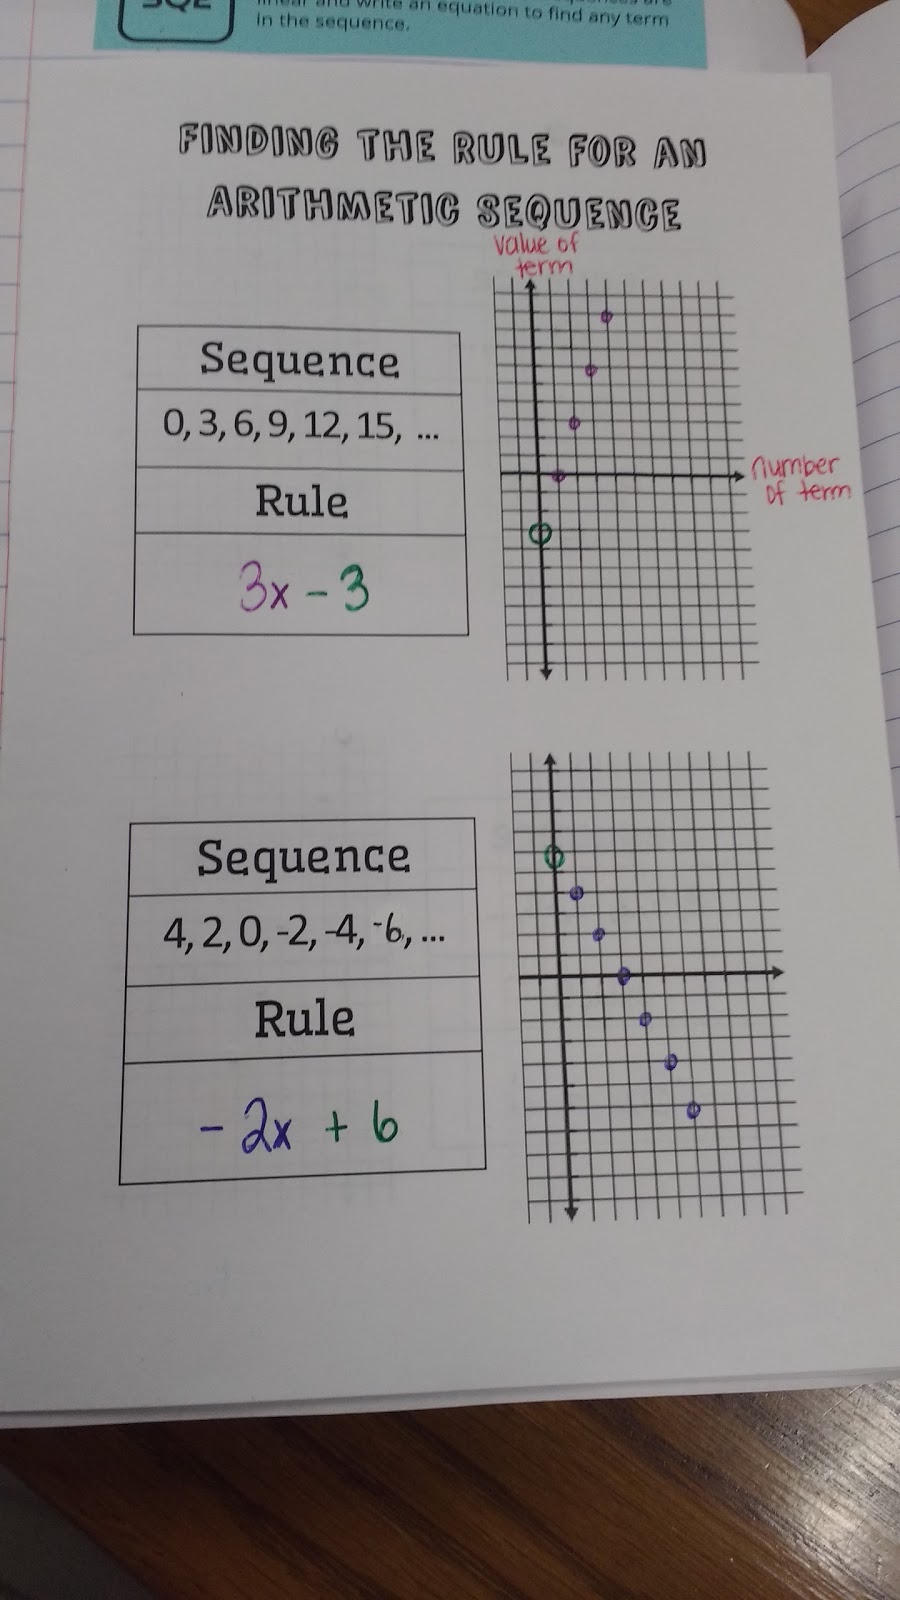 an equation to find any term
in the sequence.
FINDING THE RULE FOR AN
ARITHMETIC SEQUENCE
value of
term
Sequence
0, 3, 6, 9, 12, 15, ...
Rule
3x - 3
number
of term
Sequence
4, 2, 0, -2, -4, -6, ...
Rule
- 2x + 6